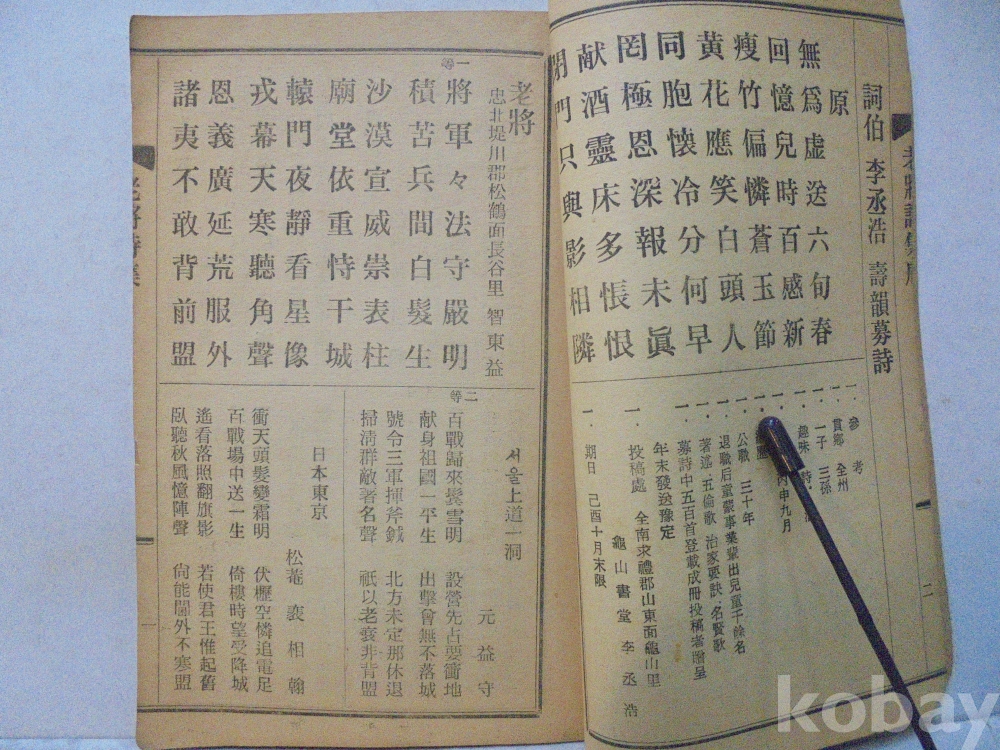 詞伯 李丞浩 壽韻募詩
原
無爲虛送六旬春
回憶兒時百感新
瘦竹偏憐蒼玉節
黃花應笑白頭人
同胞懷冷分何早
罔極恩深報未眞
献酒靈床多悵恨
閉門只與影相隣
一. 參考
一. 貫鄕 全州
一. 一子 三孫
一. 趣味 詩
丙申九月
公職 三十年
退職后童蒙事業輩出兒童千餘名
著述 五倫歌 治家要訣 名賢歌
一. 募詩中五百首登載成冊投稿者贈呈
年末發送豫定
一. 投稿處 全南求禮郡山東面龜山里
龜山書堂 李丞浩
一. 期日 己酉十月末限
二
老將
一等
忠北堤川郡松鶴面長谷里 智東益
將軍々法守嚴明
積苦兵間白髮生
沙漠宣威崇表柱
廟堂依重恃干城
轅門夜靜看星像
戎幕天寒聽角聲
恩義廣延荒服外
諸夷不敢背前盟
二等
서울上道一洞 元益守
百戰歸來鬂雪明 設營先占要衝地
献身祖國一平生 出擊曾無不落城
號令三軍揮斧鉞 北方未定那休退
掃淸群敵著名聲 祇以老衰非背盟
日本東京 松菴 裵相翰
衝天頭髮變霜明 伏櫪空憐追電足
百戰場中送一生 倚樓時望受降城
遙看落照翻旗影 若使君王惟起舊
臥聽秋風憶陣聲 尙能閫外不寒盟
一
kobay